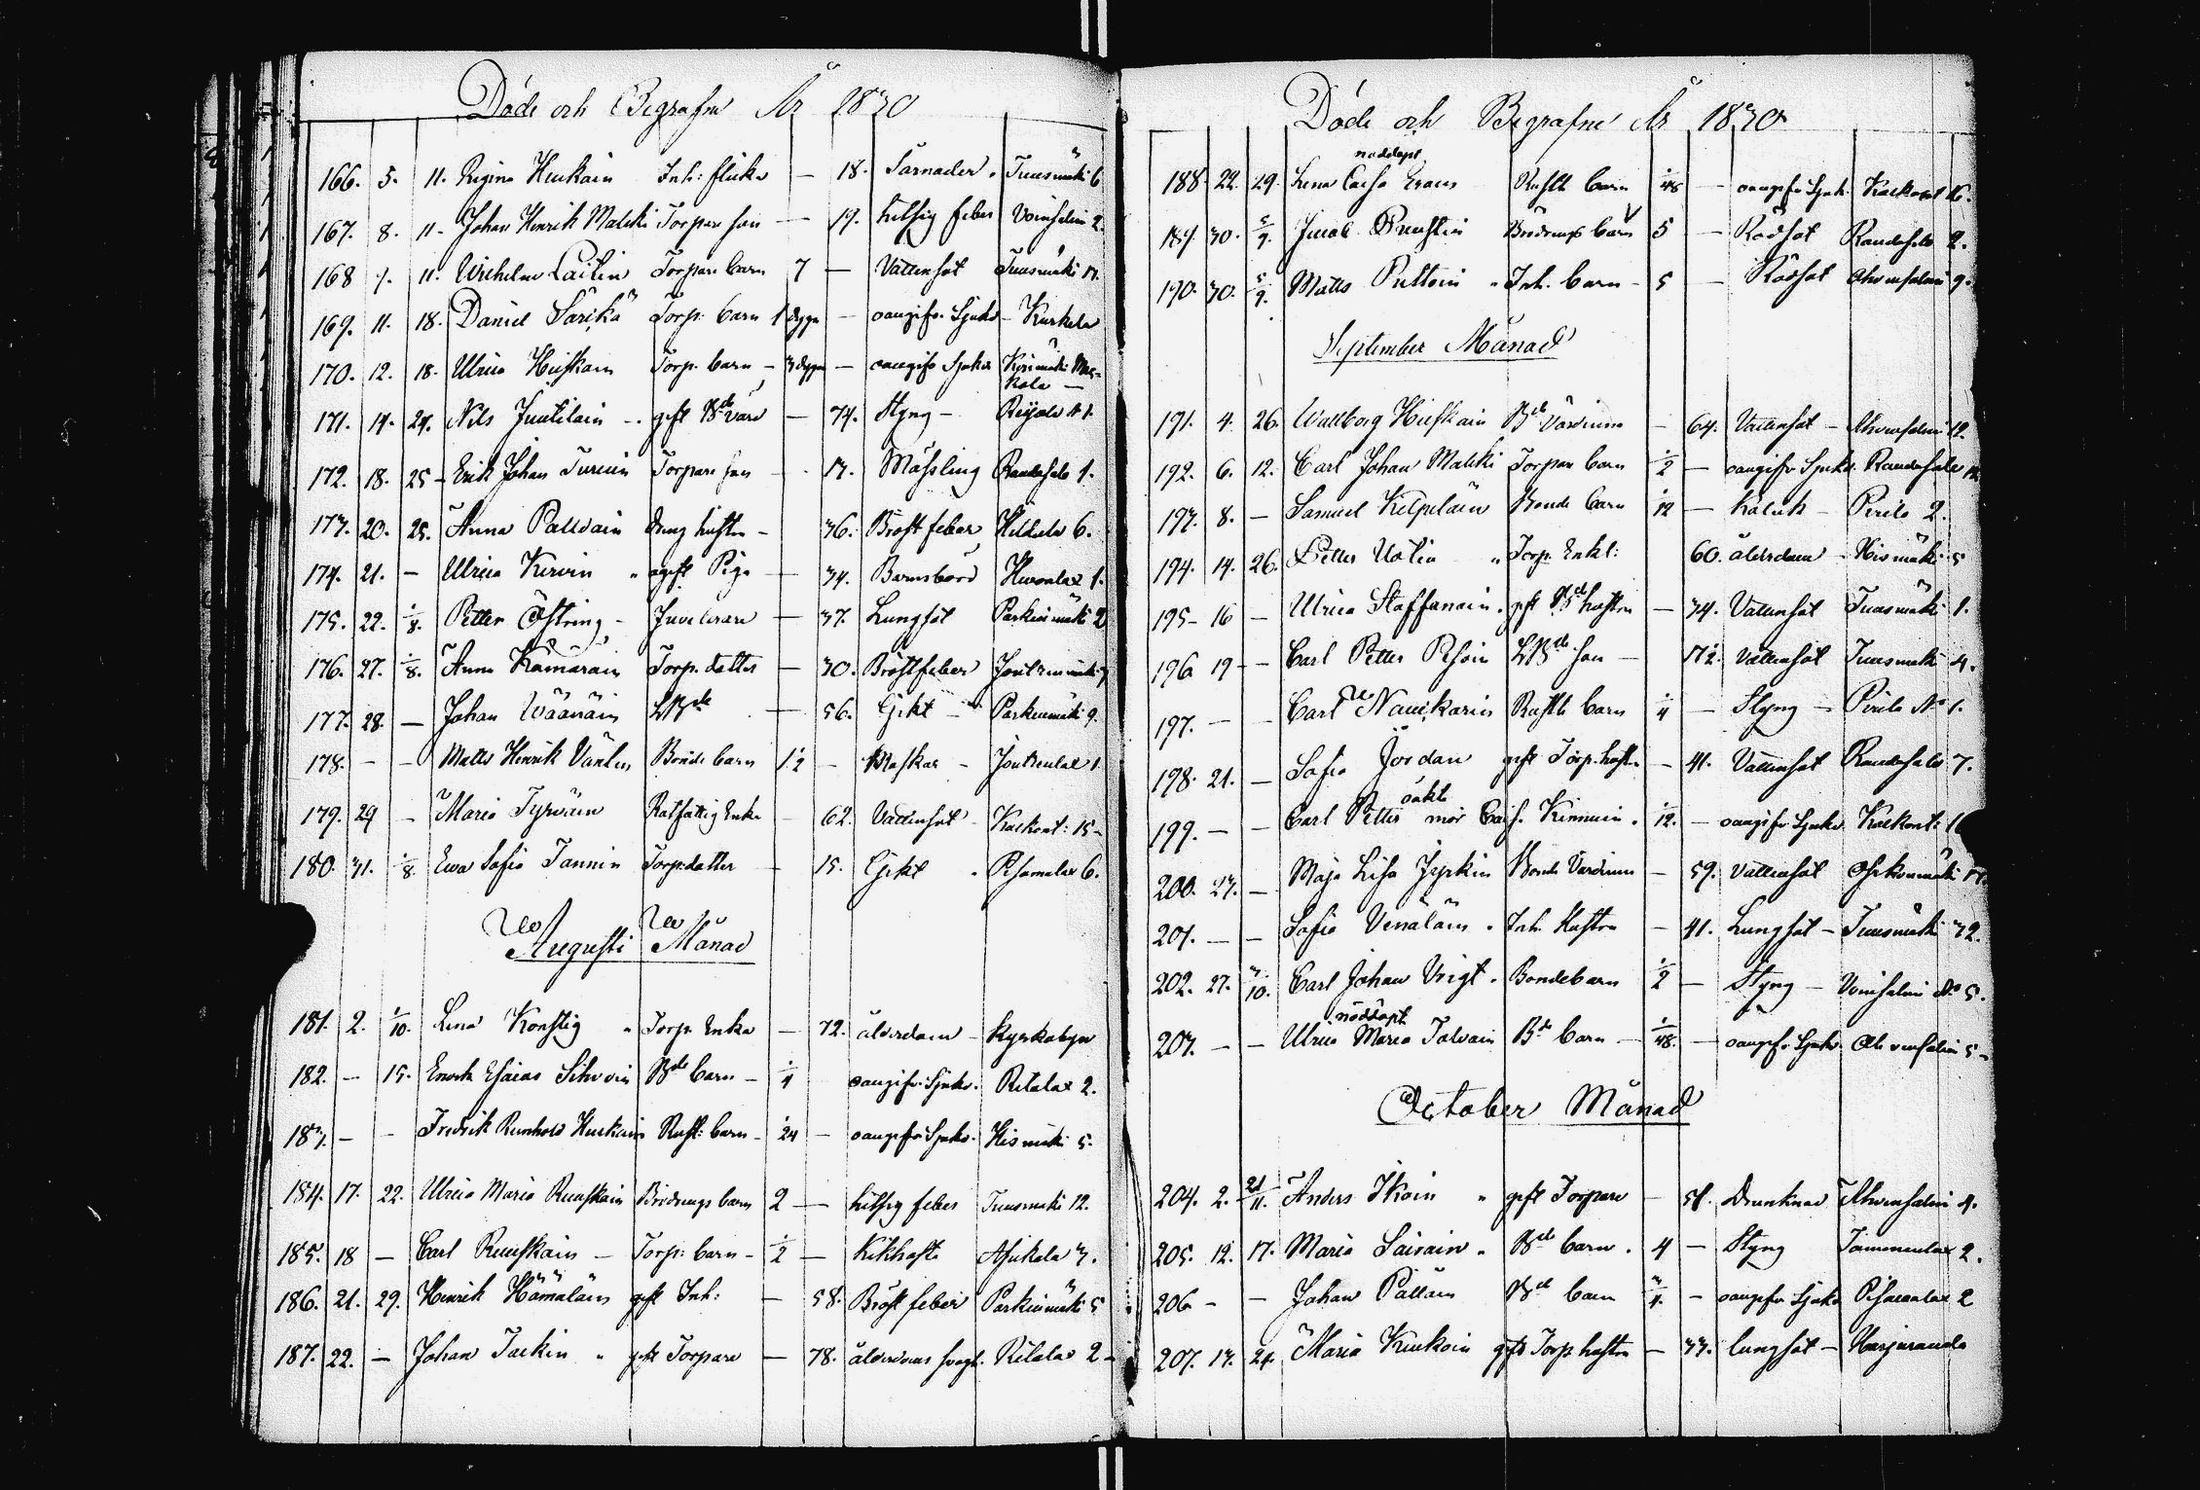 Döde och Begrafne År 1830
166. 5. 11. Regina Huskain Inh: flicka — 18. Tuusmäki 6
167. 8. 11. Johan Henrik Malcki Torpare son — 19. hitsig feber Voinsalmi 2.
168 9. 11. Wilhelm Laitin Torpare barn 7 — Vattensot Tuusmäki 17.
169. 11. 18. Daniel Särkä Torp. barn 1 dygn — oangifn Sjukd. Kurkela
170. 12. 18. Ulrica Huskain Torp. barn — 3 dygn — oangifn Sjukd
171. 14. 24. Nils Juutilain gift Bde — 74. Styng —
172. 18. 25 — Erik Johan Turuin Torpare son — 13. Mässling Randasalo 1.
173. 20. 25. Anna Pallvain dräng hustru — 36. Bröst feber 6.
174. 21. — Ulrica Kervin ogift Piga — 34. Barnsbörd 1.
175. 22. 1/8. Petter Östring — Juvelerare — 37. Lungsot Parkuinmäki 2
176. 27. 1/8. Anna Kämäräin Torp. dotter — 30. Bröstfeber
177. 28. — Johan Wäänäin LBde — 56. Gikt — Parkuinmäki 9.
178. — — Matts Henrik Bonde barn 1 1/2 — Raskar — 1
179. 29 — Maria Tyrväin Rotfattig Enka — 62. Vattensot Kaekont: 15 —
180. 31. 1/8. Ewa Sofia Tannin Torp. dotter — 15. Gikt Pisamalax 6.
Augusti Månad
181. 2. 1/10. Lena Konstig Torp. Enka — 72. ålderdom — Kyrkobyn
182. — 15. Enock Esaias Sihvoin Bde barn — 1/4 oangifn Sjukd. Ritalax 2.
183. — — Fredrik Reinhold Huskain Rust: barn — 1/24 — oangifn Sjukd. Hismäki 5.
184. 17. 22. Ulrica Maria Ruuskain Brödrings barn 2 — hitsig feber Tuusmäki 12.
185. 18 — Carl Ruuskain — Torp: barn — 1/2 — Kikhosta Asikala 3.
186. 21. 29. Henrik Hämäläin gift Inh: — 58. Bröst feber Parkuinmäki 5
187. 22. — Johan Taskin gift Torpare — 78. ålderdoms svagh. Ritalax 2 —
Döde och Begrafne År 1830
188. 22. 29. Lena Caisa Eraus Rustl barn 1/48 — oangifn Sjuk. Kaekont 16.
nöddöpt
189. 30. 5/9. Jacob Brödrings barn 5 — Rödsot Randasalo 2.
190. 30. 5/9. Matts Puttoin Inh. barn — 5 — Rödsot Ahvensalmi 9.
September Månad
191. 4. 26. Wallborg Huskain Bde Värdinna — 64. Vattensot — Ahvensalmi 12.
192. 6. 12. Carl Johan Malcki Torpare barn 1/2 — oangifn Sjukd. Randasalo
193. 8. — Samuel Kilpiläin Bonde barn 1/12 — Pirilä 2.
194. 14. 26. Petter Torp. Enkl: 60. ålderdom — Hismäki 5
195 — 16 — Ulrica Staffanain gift Bde hustru — 34. Vattensot Tuusmäki 1.
196 19 — — Carl Petter LBde son — 17 1/2. Vattensot Tuusmäki 4.
197. — — Carl Nauikarin Rustl barn 1/4 — Styng — Pirilä No 1.
198. 21. — Sofia Jordan gift Torp. hustru — 41. Vattensot Randasalo 7.
199. — — Carl Petter oäkta mor Caisa Kinnuin 1/12. — oangifn Sjukd. Kaekont:
200. 23. — Maja Lisa Jyrkin Bonde Värdinna — 59. Vattensot
201. — — Sofia Venäläin Inh. Hustru — 41. Lungsot — Tuusmäki 32.
202. 27. 3/10. Carl Johan Vrigt. Bondebarn 1/2 — Styng — Voinsalmi No 5.
nöddöpt
203. — — Ulrica Maria Talvain Bde barn — 1/48. — oangifn Sjukd. Ahvensalmi 5 —
October Månad
204. 2. 21/11. Anders Ikoin gift Torpare — 51. Drunknad Ahvensalmi 4.
205. 12. 17. Maria Saisain Bde barn 4 — Styng Tammenlax 2.
206 — — Johan Pälläin Bde barn 3/4. — oangifn Sjukd Pisamalax 2
207. 13. 24. Maria Kuukoin gift Torp hustru — 33. lungsot — Harjuranda